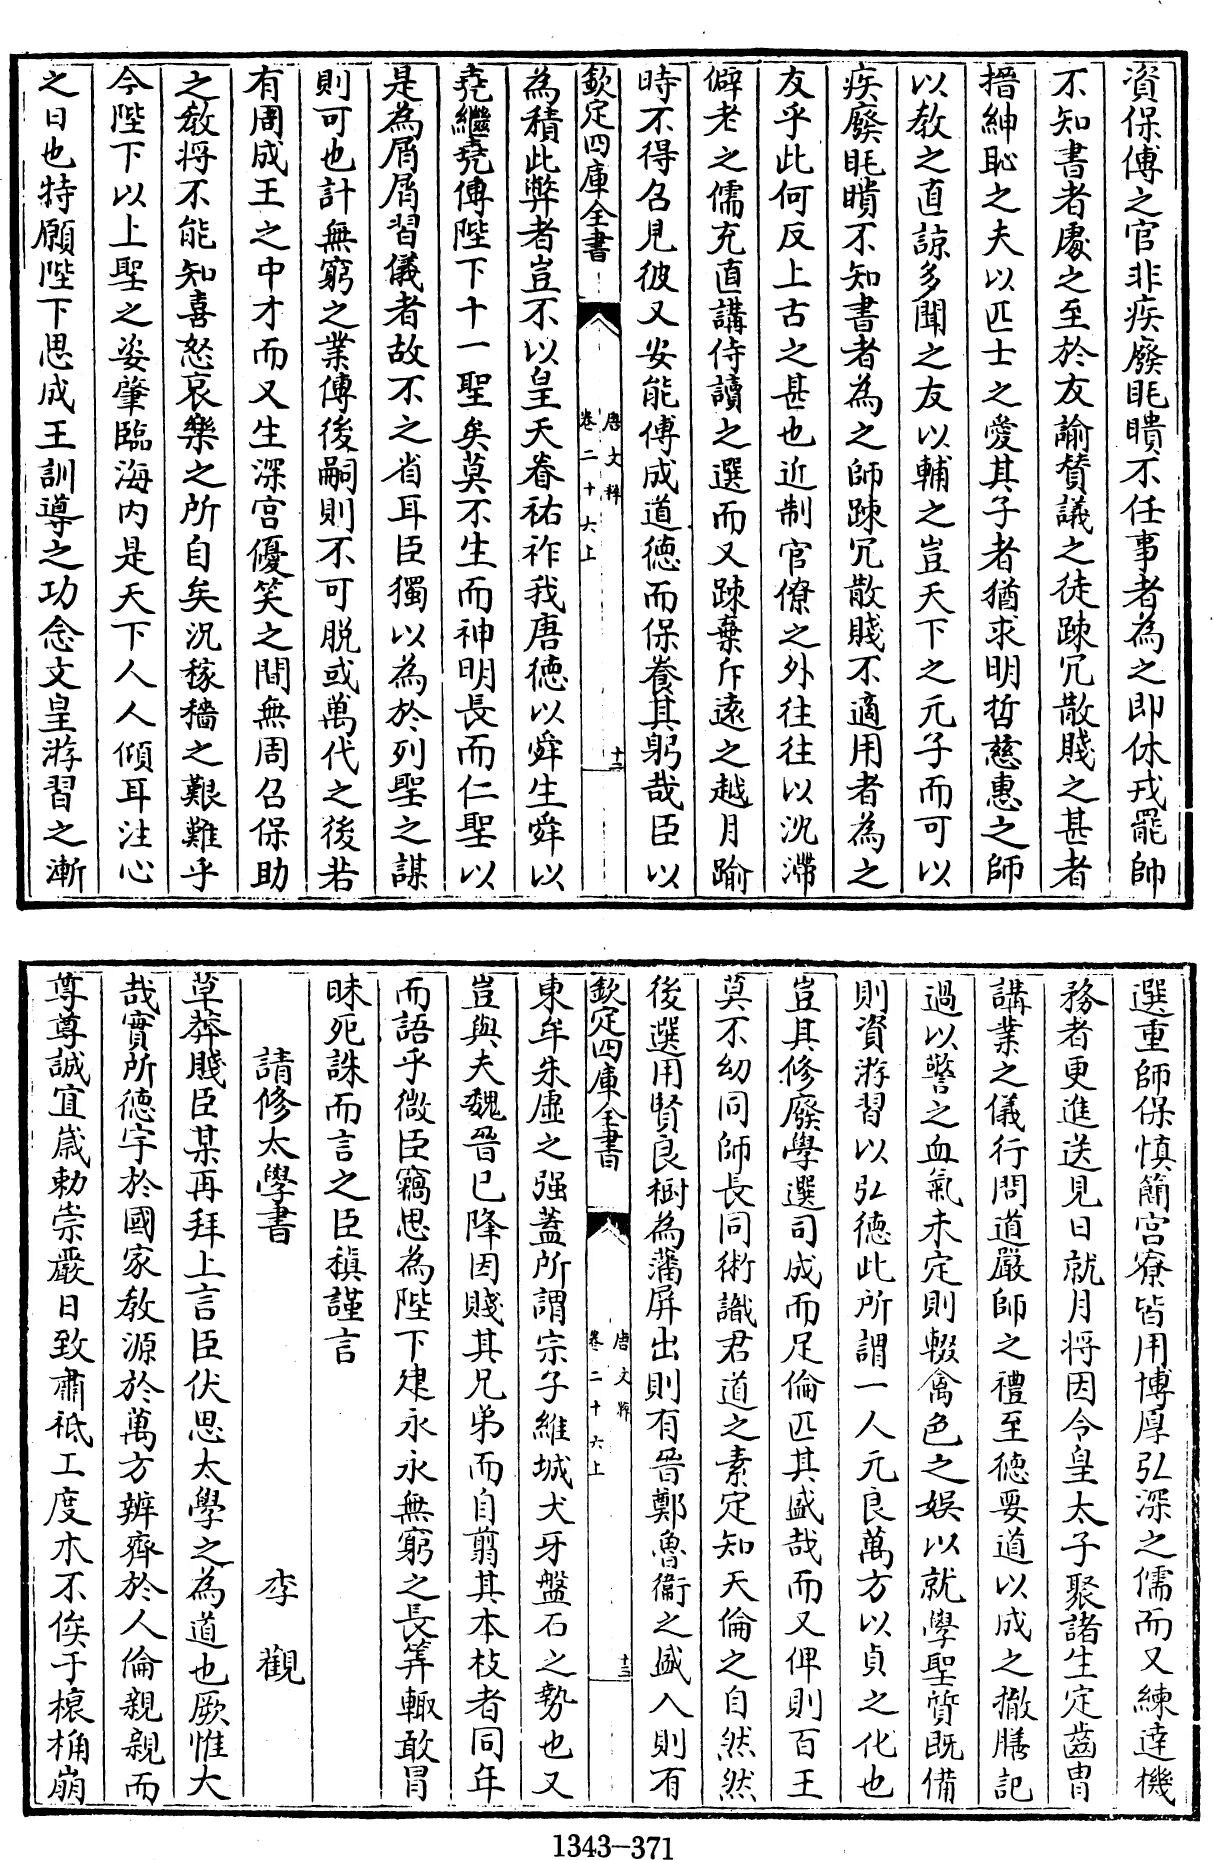 資保傅之官非疾廢眊聵不任事者為之即休戎罷帥
不知書者處之至於友諭賛議之徒踈冗散賤之甚者
搢紳恥之夫以匹士之愛其子者猶求明哲慈惠之師
以教之直諒多聞之友以輔之豈天下之元子而可以
疾廢眊聵不知書者為之師踈冗散賤不適用者為之
友乎此何反上古之甚也近制官僚之外往往以沈滯
僻老之儒充直講侍讀之選而又踈棄斥遠之越月踰
時不得召見彼又安能傅成道徳而保養其躬哉臣以
欽定四庫全書
唐文粹
卷二十六上
十二
為積此弊者豈不以皇天眷祐祚我唐徳以舜生舜以
堯繼堯傳陛下十一聖矣莫不生而神明長而仁聖以
是為屑屑習儀者故不之省耳臣獨以為於列聖之謀
則可也計無窮之業傳後嗣則不可脱或萬代之後若
有周成王之中才而又生深宫優笑之間無周召保助
之教将不能知喜怒哀樂之所自矣況稼穡之艱難乎
今陛下以上聖之姿肇臨海内是天下人人傾耳注心
之日也特願陛下思成王訓導之功念文皇游習之漸
選重師保慎簡宫寮皆用博厚弘深之儒而又練達機
務者更進送見日就月将因令皇太子聚諸生定齒胄
講業之儀行問道嚴師之禮至徳要道以成之撤膳記
過以警之血氣未定則輟禽色之娱以就學聖質既備
則資游習以弘徳此所謂一人元良萬方以貞之化也
豈其修廢學選司成而足倫匹其盛哉而又俾則百王
莫不幼同師長同術識君道之素定知天倫之自然然
後選用賢良樹為藩屏出則有晉鄭魯衞之盛入則有
欽定四庫全書
唐文粹
卷二十六上
十三
東牟朱虚之强蓋所謂宗子維城犬牙盤石之勢也又
豈與夫魏晉已降囚賤其兄弟而自翦其本枝者同年
而語乎微臣竊思為陛下建永永無窮之長筭輙敢冒
昧死誅而言之臣稹謹言
請修太學書　李觀
草莽賤臣某再拜上言臣伏思太學之為道也厥惟大
哉實所徳宇於國家教源於萬方辨齊於人倫親親而
尊尊誠宜歳勅崇嚴日致肅祗工度木不俟于榱桷崩
1343-371